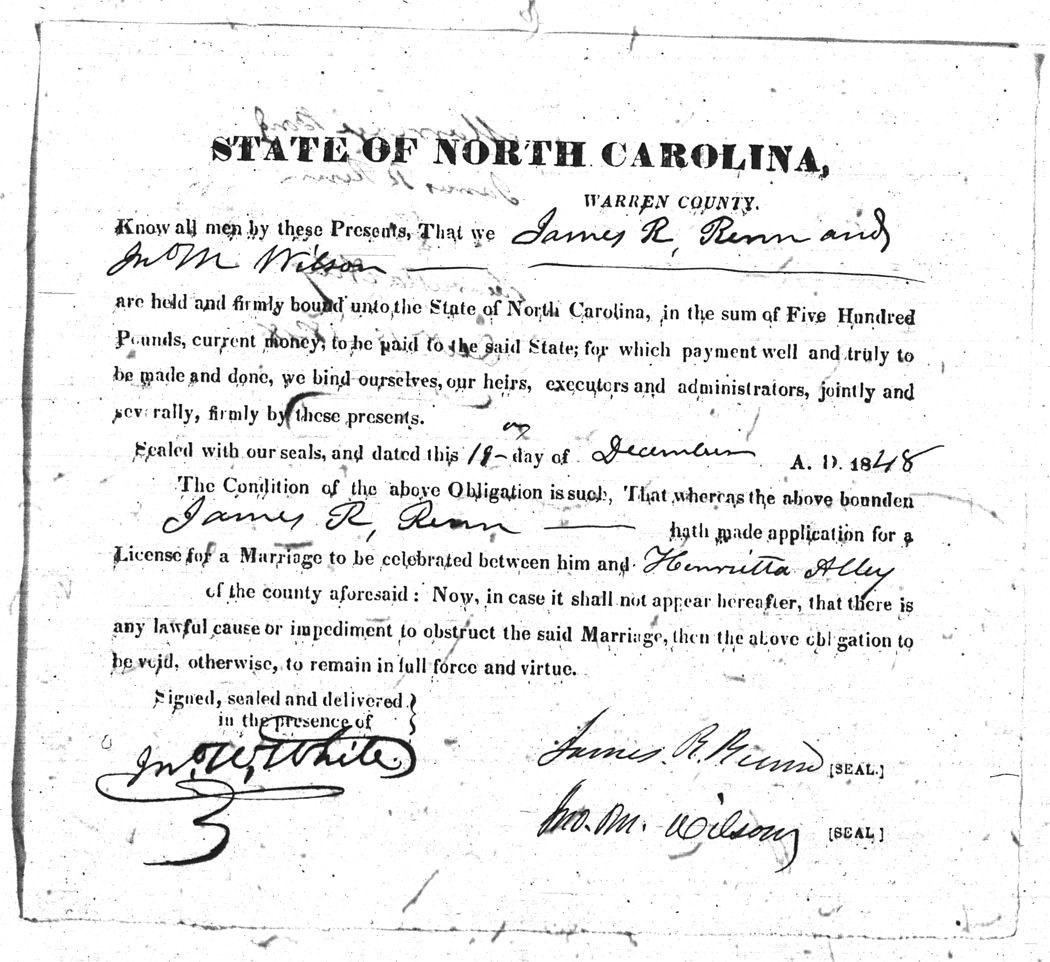 STATE OF NORTH CAROLINA,
WARREN COUNTY.
Know all men by these Presents, That we James R, Renn and
Jno M Wilson
are held and firmly bound unto the State of North Carolina, in the sum of Five Hundred
Pounds, current money, to be paid to the said State; for which payment well and truly to
be made and done, we bind ourselves, our heirs, executors and administrators, jointly and
severally, firmly by these presents.
Sealed with our seals, and dated this 19 day of December A. D. 1848
The Condition of the above Obligation is such, That whereas the above bounden
James R, Renn hath made application for a
License for a Marriage to be celebrated between him and Henrietta Alley
of the county aforesaid: Now, in case it shall not appear hereafter, that there is
any lawful cause or impediment to obstruct the said Marriage, then the above obligation to
be void, otherwise, to remain in full force and virtue.
Signed, sealed and delivered
in the presence of
Jno. W, White
James. R. Renn [SEAL.]
Jno. M. Wilson [SEAL]